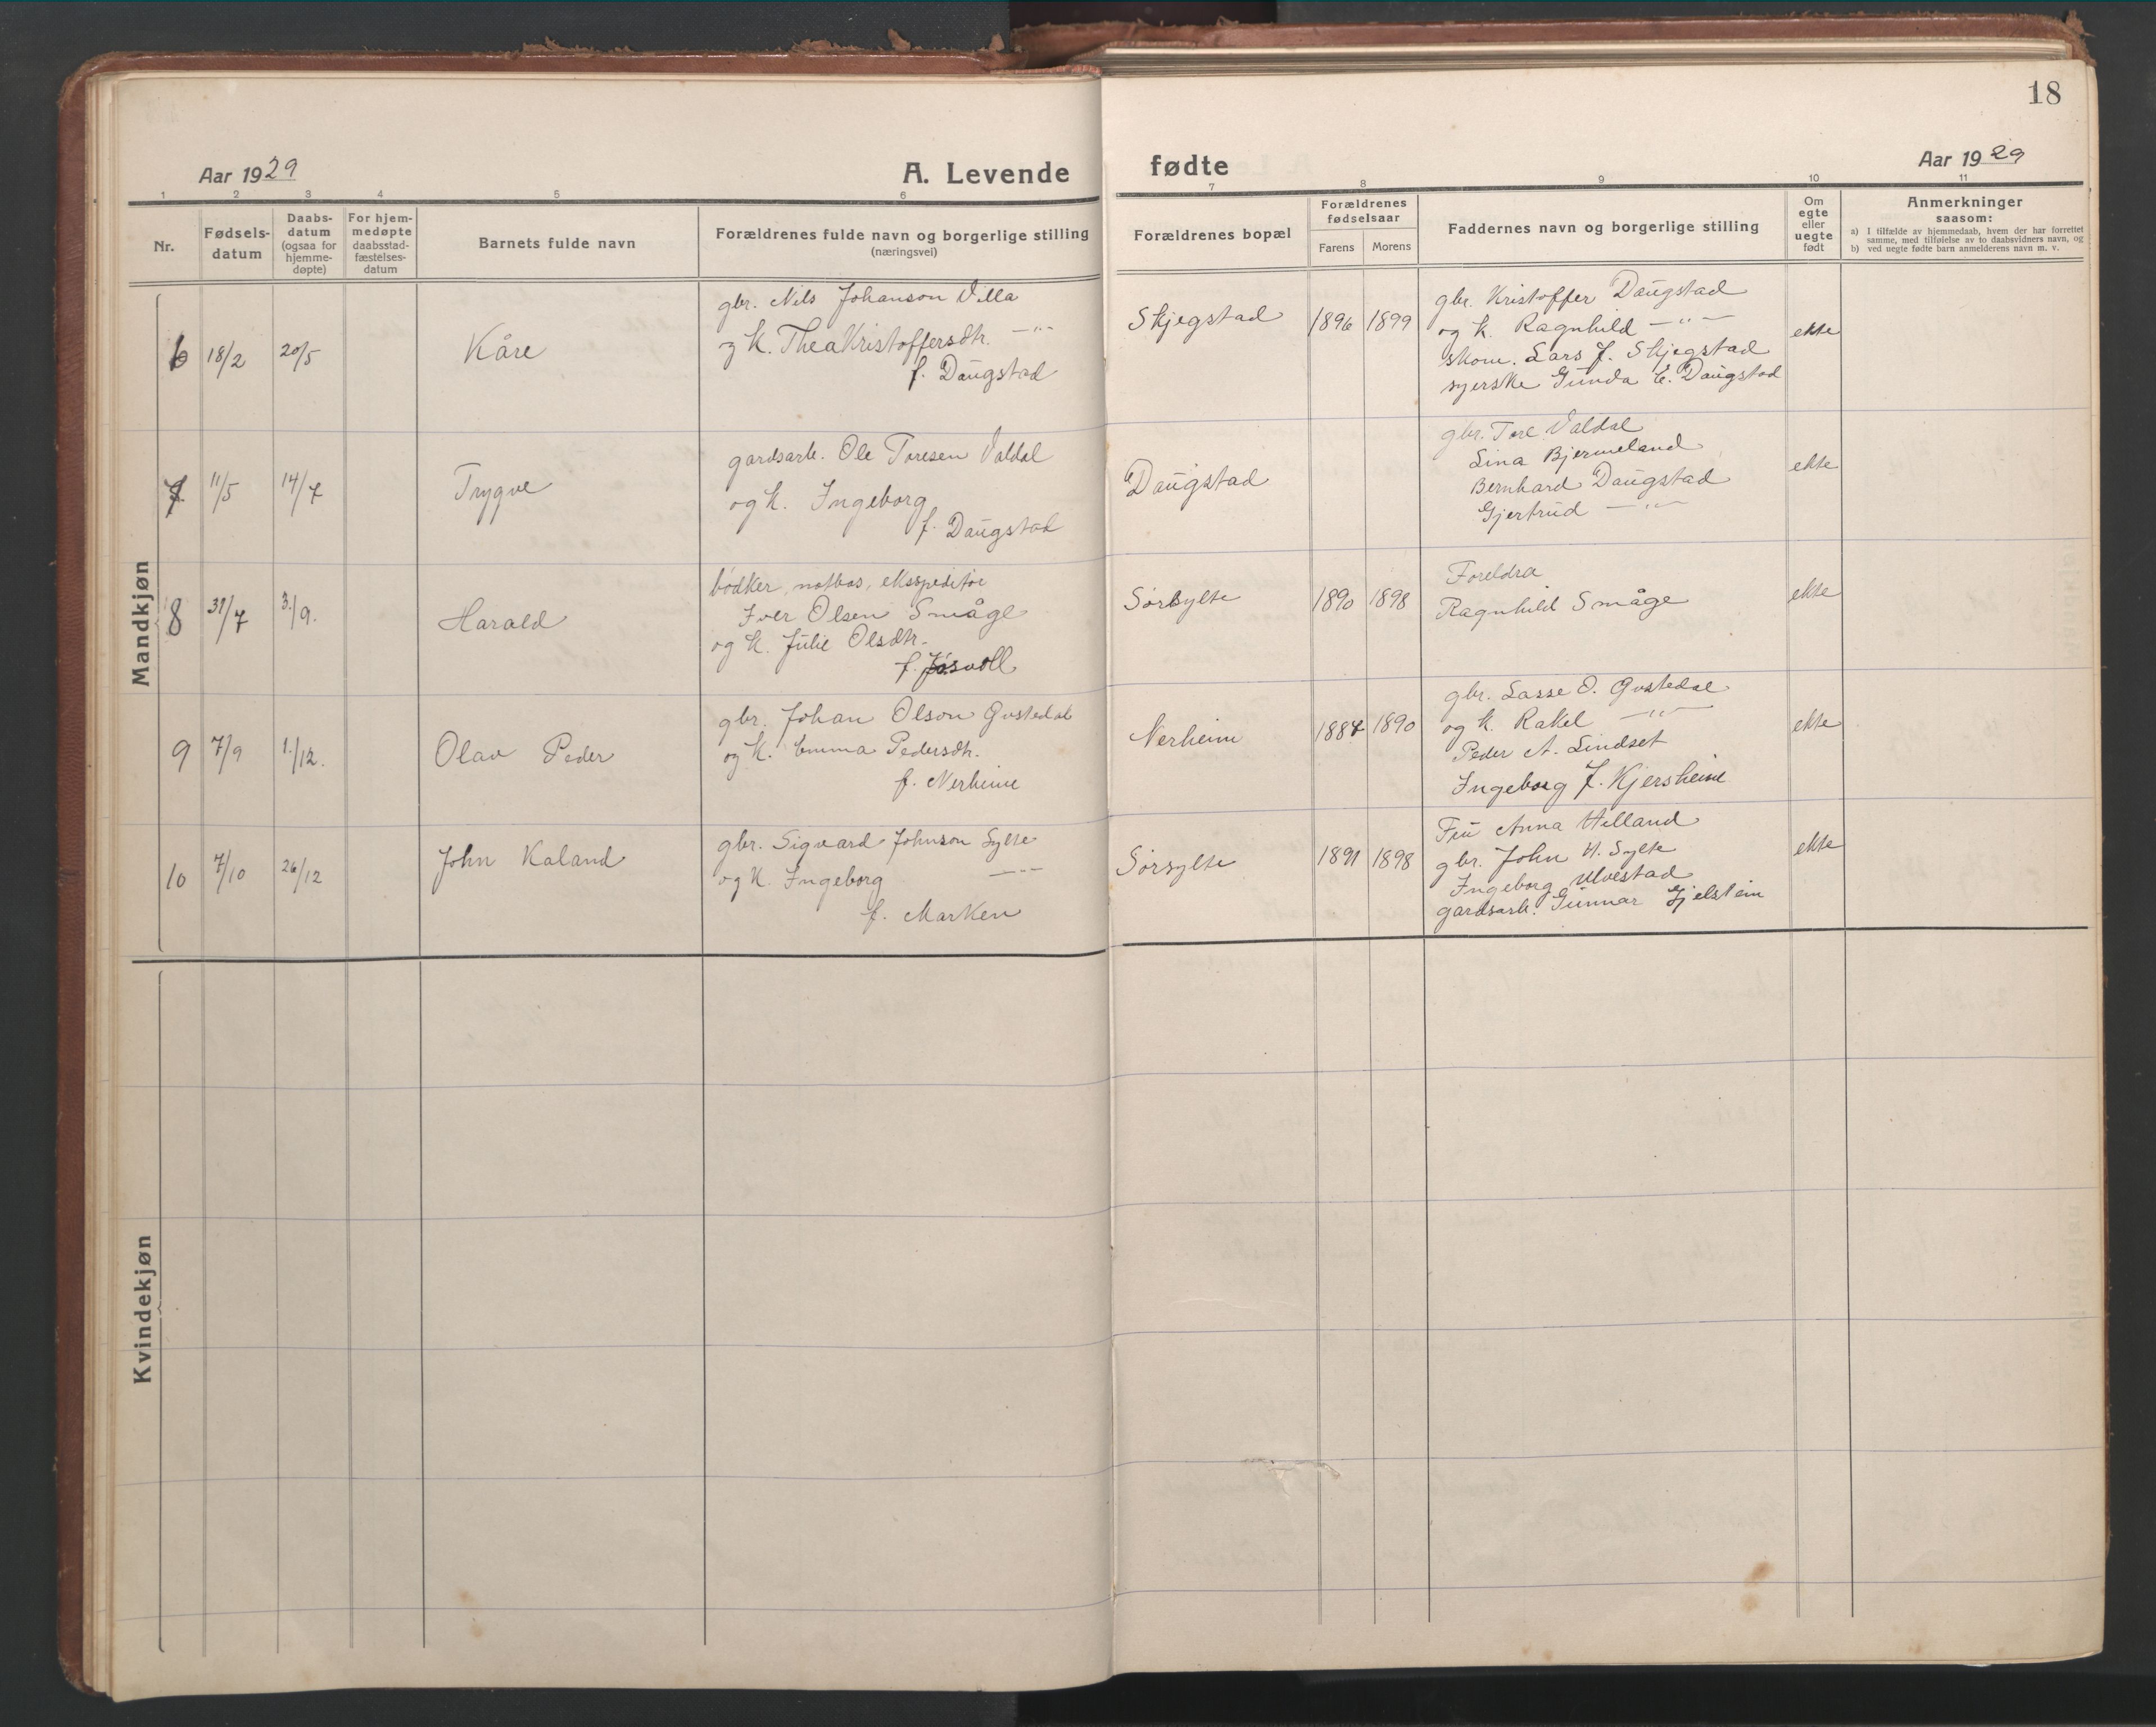 18
Aar 1929
A. Levende fødte
Aar 1929
1 2 3 4 5 6 7 8 9 10 11
Nr.
Fødsels-
datum
Daabs-
datum
(ogsaa for
hjemme-
døpte)
For hjem-
medøpte
daabsstad-
fæstelses-
datum
Barnets fulde navn
Forældrenes fulde navn og borgerlige stilling
(næringsvei)
Forældrenes bopæl
Forældrenes
fødselsaar
Farens Morens
Faddernes navn og borgerlige stilling
Om
egte
eller
uegte
født
Anmerkninger
saasom:
a) I tilfælde av hjemmedaab, hvem der har forrettet
samme, med tilføielse av to daabsvidners navn, og
b) ved uegte fødte barn anmelderens navn m. v.
Mandkjøn
6 18/2 20/5 Kåre
gbr. Nils Johanson Villa
og k. Thea Kristoffersdtr. —"—
f. Daugstad
Skjegstad 1896 1899
gbr. Kristoffer Daugstad
og k. Ragnhild —"—
skom. Lars J. Skjegstad
syerske Gunda E. Daugstad
ekte
7 11/5 14/7 Trygve
gardsarb. Ole Toresen Valdal
og k. Ingeborg
f. Daugstad
Daugstad
gbr. Tore Valdal
Lina Bjermeland
Bernhard Daugstad
Gjertrud —"—
ekte
8 31/7 3./9. Harald
bødker, notbas, ekspeditør
Iver Olsen Småge
og k. Julie Olsdtr.
f.
Sørsylte 1890 1898
Foreldra
Ragnhild Småge
ekte
9 7/9 1./12. Olav Peder
gbr. Johan Olson Gustedal
og k. Emma Pedersdtr.
f. Nerheim
Nerheim 1887 1890
gbr. Lasse O. Gustedal
og k. Rakel —"—
Peder A. Lindset
Ingeborg J. Kjersheim
ekte
10 7/10 26/12 John Kaland
gbr. Sigvard Johnson Sylte
og k. Ingeborg —"—
f. Marken
Sørsylte 1891 1898
Fru Anna Helland
gbr. John H. Sylte
Ingeborg Ulvestad
gardsarb. Gunnar Gjelstein
ekte
Kvindekjøn